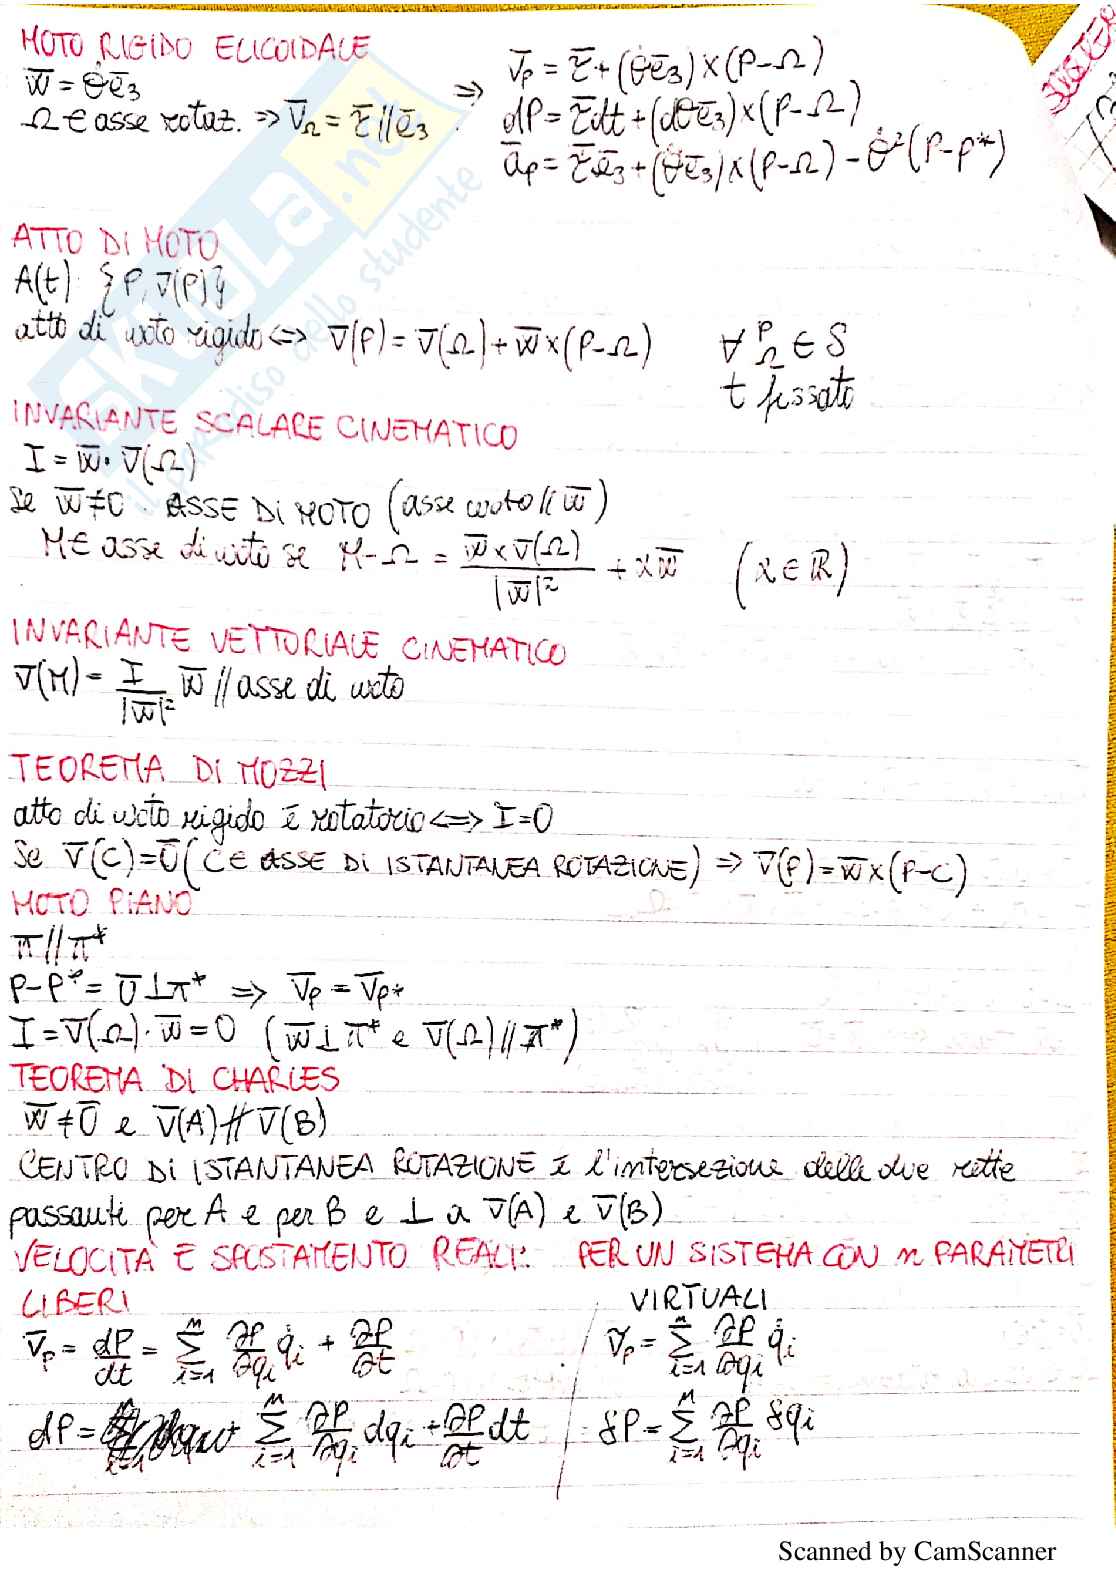 MOTO RIGIDO ELICOIDALE
w̄ = θ̇ē₃
Ω ∈ asse rotaz. ⇒ v̄_Ω = τ̄ // ē₃ ⇒ v̄_P = τ̄ + (θ̇ē₃) × (P-Ω)
dP = τ̄dt + (dθē₃) × (P-Ω)
ā_P = τ̄ē₃ + (θ̈ē₃) × (P-Ω) - θ̇²(P-P*)
ATTO DI MOTO
A(t) {P, v̄(P)}
atto di moto rigido ⇔ v̄(P) = v̄(Ω) + w̄ × (P-Ω) ∀ P, Ω ∈ S
t fissato
INVARIANTE SCALARE CINEMATICO
I = w̄ · v̄(Ω)
Se w̄ ≠ 0 ASSE DI MOTO (asse moto // w̄)
M ∈ asse di moto se M - Ω = w̄ × v̄(Ω) / |w̄|² + λw̄ (λ ∈ ℝ)
INVARIANTE VETTORIALE CINEMATICO
v̄(M) = I / |w̄|² w̄ // asse di moto
TEOREMA DI MOZZI
atto di moto rigido è rotatorio ⇔ I = 0
Se v̄(C) = 0̄ (C ∈ ASSE DI ISTANTANEA ROTAZIONE) ⇒ v̄(P) = w̄ × (P-C)
MOTO PIANO
π // π*
P-P* = ū ⊥ π* ⇒ v̄_P = v̄_P*
I = v̄(Ω) · w̄ = 0 (w̄ ⊥ π* e v̄(Ω) // π*)
TEOREMA DI CHARLES
w̄ ≠ 0̄ e v̄(A) ∦ v̄(B)
CENTRO DI ISTANTANEA ROTAZIONE è l'intersezione delle due rette
passanti per A e per B e ⊥ a v̄(A) e v̄(B)
VELOCITÀ E SPOSTAMENTO REALI: PER UN SISTEMA CON n PARAMETRI
LIBERI
VIRTUALI
v̄_P = dP/dt = Σ_{i=1}^{n} ∂P/∂q_i q̇_i + ∂P/∂t
v̄_P = Σ_{i=1}^{n} ∂P/∂q_i q̇_i
dP = Σ_{i=1}^{n} ∂P/∂q_i dq_i + ∂P/∂t dt
δP = Σ_{i=1}^{n} ∂P/∂q_i δq_i
SKUOLA.net
il paradiso dello studente
Scanned by CamScanner